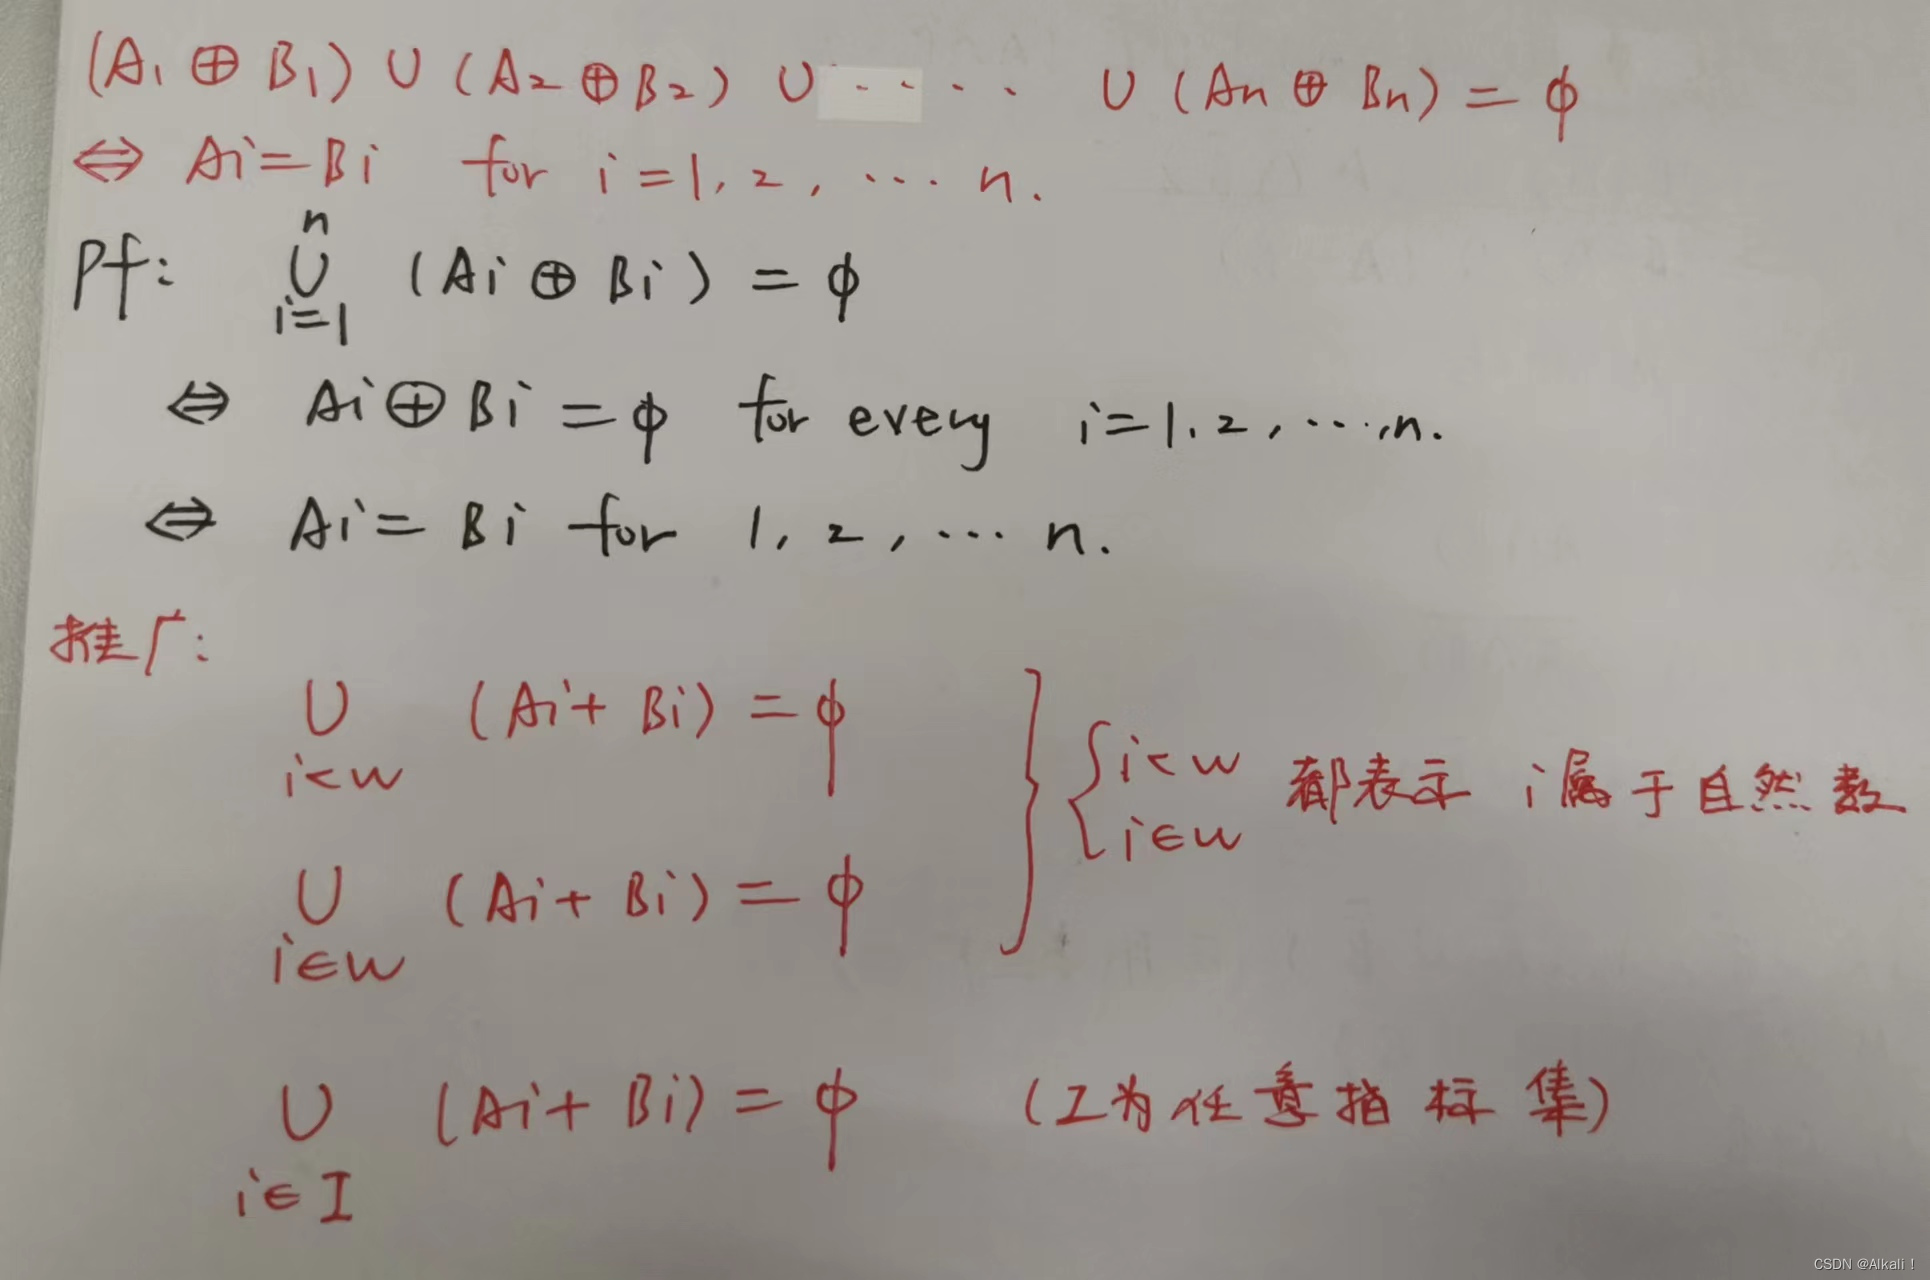 (A₁ ⊕ B₁) ∪ (A₂ ⊕ B₂) ∪ ···· ∪ (An ⊕ Bn) = ϕ
⇔ Ai = Bi for i = 1, 2, ··· n.
Pf: n
∪ (Ai ⊕ Bi) = ϕ
i=1
⇔ Ai ⊕ Bi = ϕ for every i = 1, 2, ···, n.
⇔ Ai = Bi for 1, 2, ··· n.
推广:
∪ (Ai + Bi) = ϕ
i<w
{ i<w
i∈w 都表示 i属于自然数
∪ (Ai + Bi) = ϕ
i∈w
∪ (Ai + Bi) = ϕ (I为任意指标集)
i∈I
CSDN @Alkali！